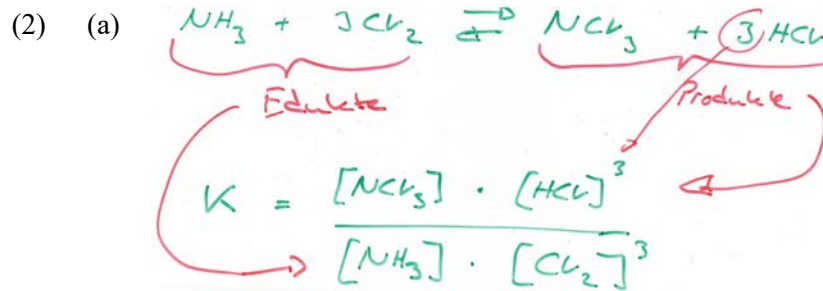 (2) (a) NH₃ + 3Cl₂ ⇌ NCl₃ + 3HCl
Edukte Produkte
K = [NCl₃] · [HCl]³
[NH₃] · [Cl₂]³